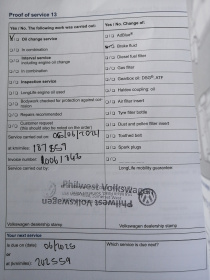 Proof of service 13
Yes / No. The following work was carried out:
X Oil change service
In combination
Interval service
including engine oil change
In combination
Inspection service
LongLife engine oil used
Bodywork checked for protection against corrosion
Repairs recommended
Customer request
(this should also be noted on the order)
Service carried out on:
at km/miles: 187857
Invoice number:
Service carried out by:
Volkswagen dealership stamp
Yes / No. Change of:
AdBlue®
Brake fluid
Diesel fuel filter
Gas filter
Gearbox oil: DSG®, ATF
Haldex coupling: oil
Air filter insert
Tyre filler bottle
Dust and pollen filter insert
Toothed belt
Spark plugs
LongLife mobility guarantee
Philwest Volkswagen
Philwest Volkswagen
Volkswagen dealership stamp
Your next service
is due on (date): 06/2025
or
at (km/miles): 202559
Which service is due next?